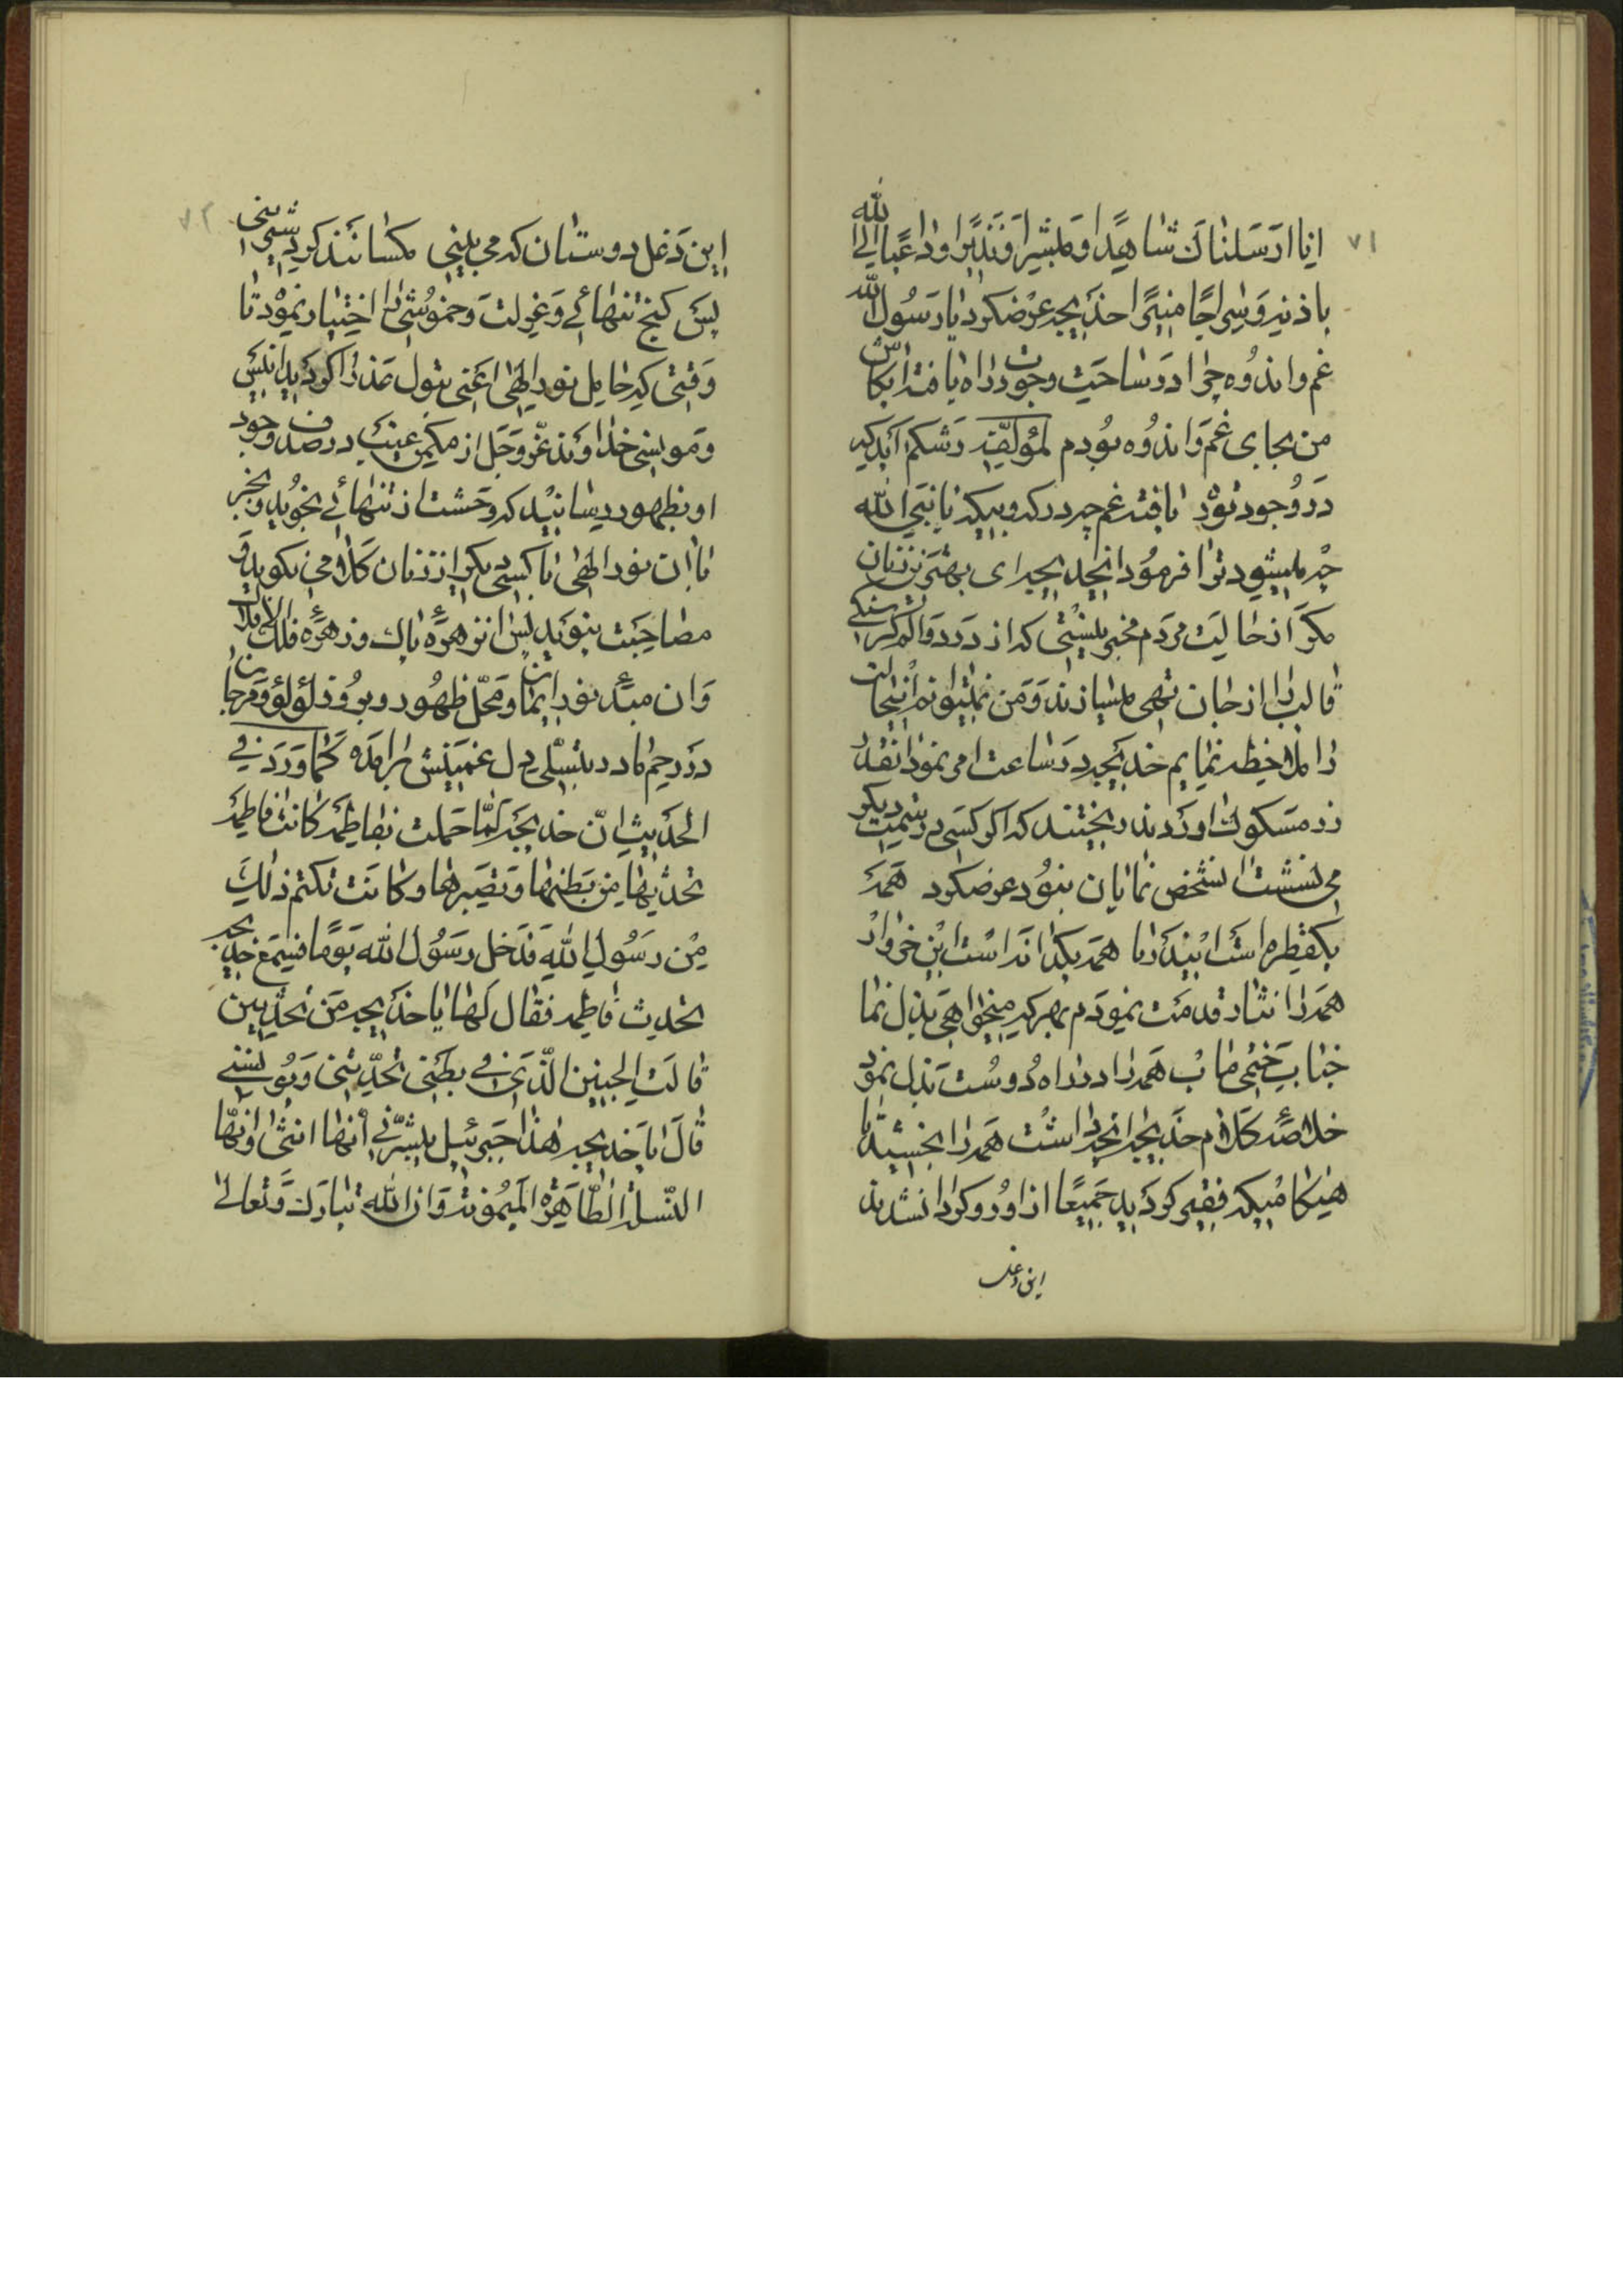 ۷۱
انا ارسلناک شاهدا و مبشرا و نذیرا و داعیا الی الله
باذنه و سراجا منیرا خدیجه عرضکرد یا رسول الله
غم و اندوه چرا در ساحت وجودت راه یافته ایکاش
من بجای غم و اندوه بودم لمؤلفه رشکم آید که
در وجود تو یافته غم چه درکه و بیکه یا نبی الله
چه میشود ترا فرمود ایخدیجه ای بهترین زنان
مکر از حالت مردم مخبر نیستی که از درد و الم کرسنکی
قالب را از جان تهی میسازند و من نمیتوانم اینحالت
را ملاحظه نمایم خدیجه در ساعت امر نمود انقدر
زر مسکوک اوردند ریختند که اگر کسی در سمت دیکر
می نشست انشخص نمایان نبود عرضکرد همه
یکقطره است این دریا همه یکدانه است این خروار
همه را نثار قدمت نمودم بهر که میخواهی بذل نما
جناب ختمی ماب همه را در راه دوست بذل نمود
خلاصه کلام خدیجه انچه داشت همه را بخشید تا
هنکامیکه فقیر کردید جمیعا از او رو کردان شدند
این دغل
۷۲
این دغل دوستان که می بینی مکسانند کرد شیرینی
پس کنج تنهائی و عزلت و خموشی را اختیار نمود تا
وقتی که حامل نور الهی اعنی بتول عذرا کردید انیس
و مونسی خداوند عز و جل از مکمن غیب در صدف وجود
او بظهور رسانید که وحشت از تنهائی نجوید و بجز
با ان نور الهی با کسی دیکر از زنان کلامی نکوید و
مصاحبت ننوید پس ان زهرهٔ پاک و زهرهٔ فلک الافلاک
و ان مبدء نور ایمان و محل ظهور و بروز لؤلؤ و مرجان
در رحم مادر بتسلی دل غمینش برامده کما ورد فی
الحدیث ان خدیجة لما حملت بفاطمة کانت فاطمة
تحدثها من بطنها و تصبرها و کانت تکتم ذلک
من رسول الله فدخل رسول الله یوما فسمع خدیجه
تحدث فاطمه فقال لها یا خدیجه من تحدثین
قالت الجنین الذی فی بطنی تحدثنی و یونسنی
قال یا خدیجه هذا جبرئیل یبشرنی انها انثی و انها
النسلة الطاهرة المیمونة و ان الله تبارک و تعالی